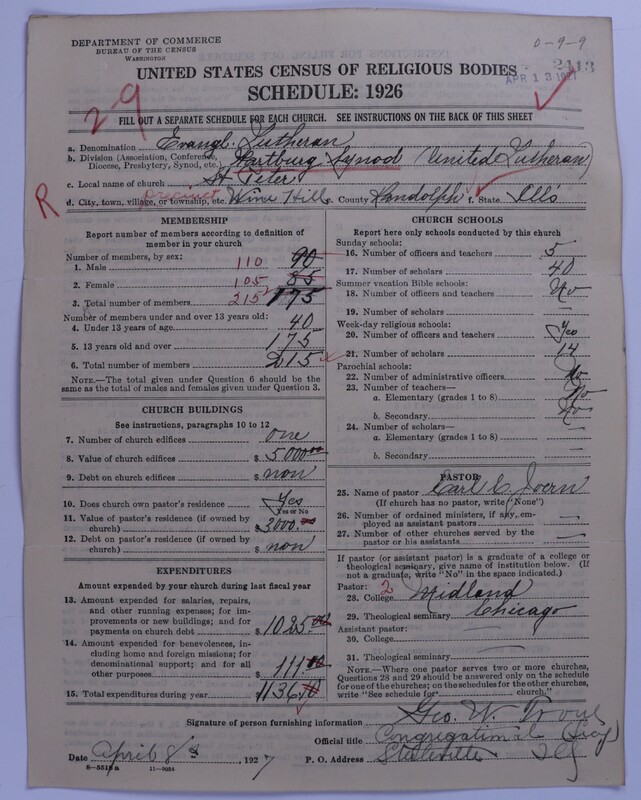 DEPARTMENT OF COMMERCE
BUREAU OF THE CENSUS
WASHINGTON
0-9-9
2413
APR 13 1927
UNITED STATES CENSUS OF RELIGIOUS BODIES
SCHEDULE: 1926
29
FILL OUT A SEPARATE SCHEDULE FOR EACH CHURCH. SEE INSTRUCTIONS ON THE BACK OF THIS SHEET
a. Denomination Evangl. Lutheran
b. Division (Association, Conference, Diocese, Presbytery, Synod, etc.) Wartburg Synod (United Lutheran)
c. Local name of church St Peter
R
precinct
d. City, town, village, or township, etc. Wine Hill e. County Randolph f. State Ills
MEMBERSHIP
Report number of members according to definition of
member in your church
Number of members, by sex:
1. Male 110 90
2. Female 105 85
3. Total number of members 215 175
Number of members under and over 13 years old:
4. Under 13 years of age 40
5. 13 years old and over 175
6. Total number of members 215
NOTE.—The total given under Question 6 should be the
same as the total of males and females given under Question 3.
CHURCH BUILDINGS
See instructions, paragraphs 10 to 12
7. Number of church edifices one
8. Value of church edifices $ 5000.00
9. Debt on church edifices $ non
10. Does church own pastor's residence Yes
Yes or No
11. Value of pastor's residence (if owned by
church) $ 3000.00
12. Debt on pastor's residence (if owned by
church) $ non
EXPENDITURES
Amount expended by your church during last fiscal year
13. Amount expended for salaries, repairs,
and other running expenses; for im-
provements or new buildings; and for
payments on church debt $ 1025.00
14. Amount expended for benevolences, in-
cluding home and foreign missions; for
denominational support; and for all
other purposes $ 111.00
15. Total expenditures during year 1136.0
CHURCH SCHOOLS
Report here only schools conducted by this church
Sunday schools:
16. Number of officers and teachers 5
17. Number of scholars 40
Summer vacation Bible schools:
18. Number of officers and teachers No
19. Number of scholars —
Week-day religious schools:
20. Number of officers and teachers Yes
21. Number of scholars 14
Parochial schools:
22. Number of administrative officers No
23. Number of teachers—
a. Elementary (grades 1 to 8) No
b. Secondary No
24. Number of scholars—
a. Elementary (grades 1 to 8) —
b. Secondary —
PASTOR
25. Name of pastor Carl C
(If church has no pastor, write "None")
26. Number of ordained ministers, if any, em-
ployed as assistant pastors —
27. Number of other churches served by the
pastor or his assistants —
If pastor (or assistant pastor) is a graduate of a college or
theological seminary, give name of institution below. (If
not a graduate, write "No" in the space indicated.)
Pastor: 2
28. College Midland
29. Theological seminary Chicago
Assistant pastor:
30. College
31. Theological seminary
NOTE.—Where one pastor serves two or more churches,
Questions 28 and 29 should be answered only on the schedule
for one of the churches; on the schedules for the other churches,
write "See schedule for church."
Signature of person furnishing information Geo. W.
Official title Congregational
Date April 8, 1927 P. O. Address Steeleville Ill
8—5518 a 11—9034